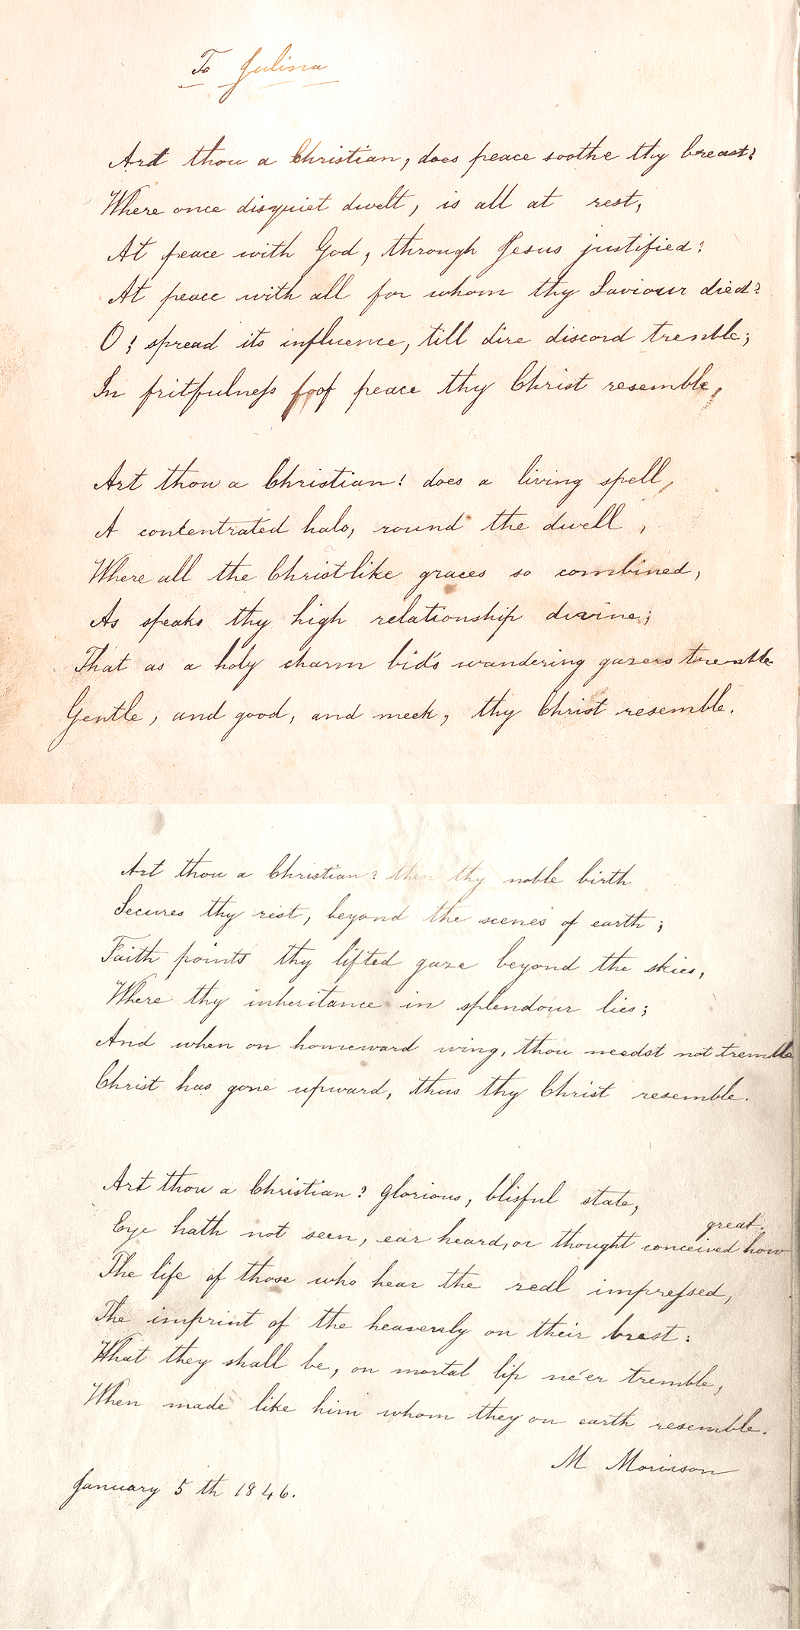 To Julina
Art thou a Christian, does peace soothe thy breast?
Where once disquiet dwelt, is all at rest,
At peace with God, through Jesus justified?
At peace with all for whom thy Saviour died?
O! spread its influence, till dire discord tremble;
In fritfulness foof peace thy Christ resemble,
Art thou a Christian! does a living spell,
A contentrated halo, round the dwell,
Where all the Christ-like graces so combined,
As speaks thy high relationship divine;
That as a holy charm bids wandering gazers tremble
Gentle, and good, and meek, thy Christ resemble.
Art thou a Christian? then thy noble birth
Secures thy rest, beyond the scenes of earth;
Faith points thy lifted gaze beyond the skies,
Where thy inheritance in splendour lies;
And when on homeward wing, thou needst not tremble
Christ has gone upward, thus thy Christ resemble.
Art thou a Christian? glorious, blissful state,
great.
Eye hath not seen, ear heard, or thought conceived how
The life of those who hear the redl impressed,
The imprint of the heavenly on their brest:
What they shall be, on mortal lip ne'er tremble,
When made like him whom they on earth resemble.
M Morisson
January 5th 1846.